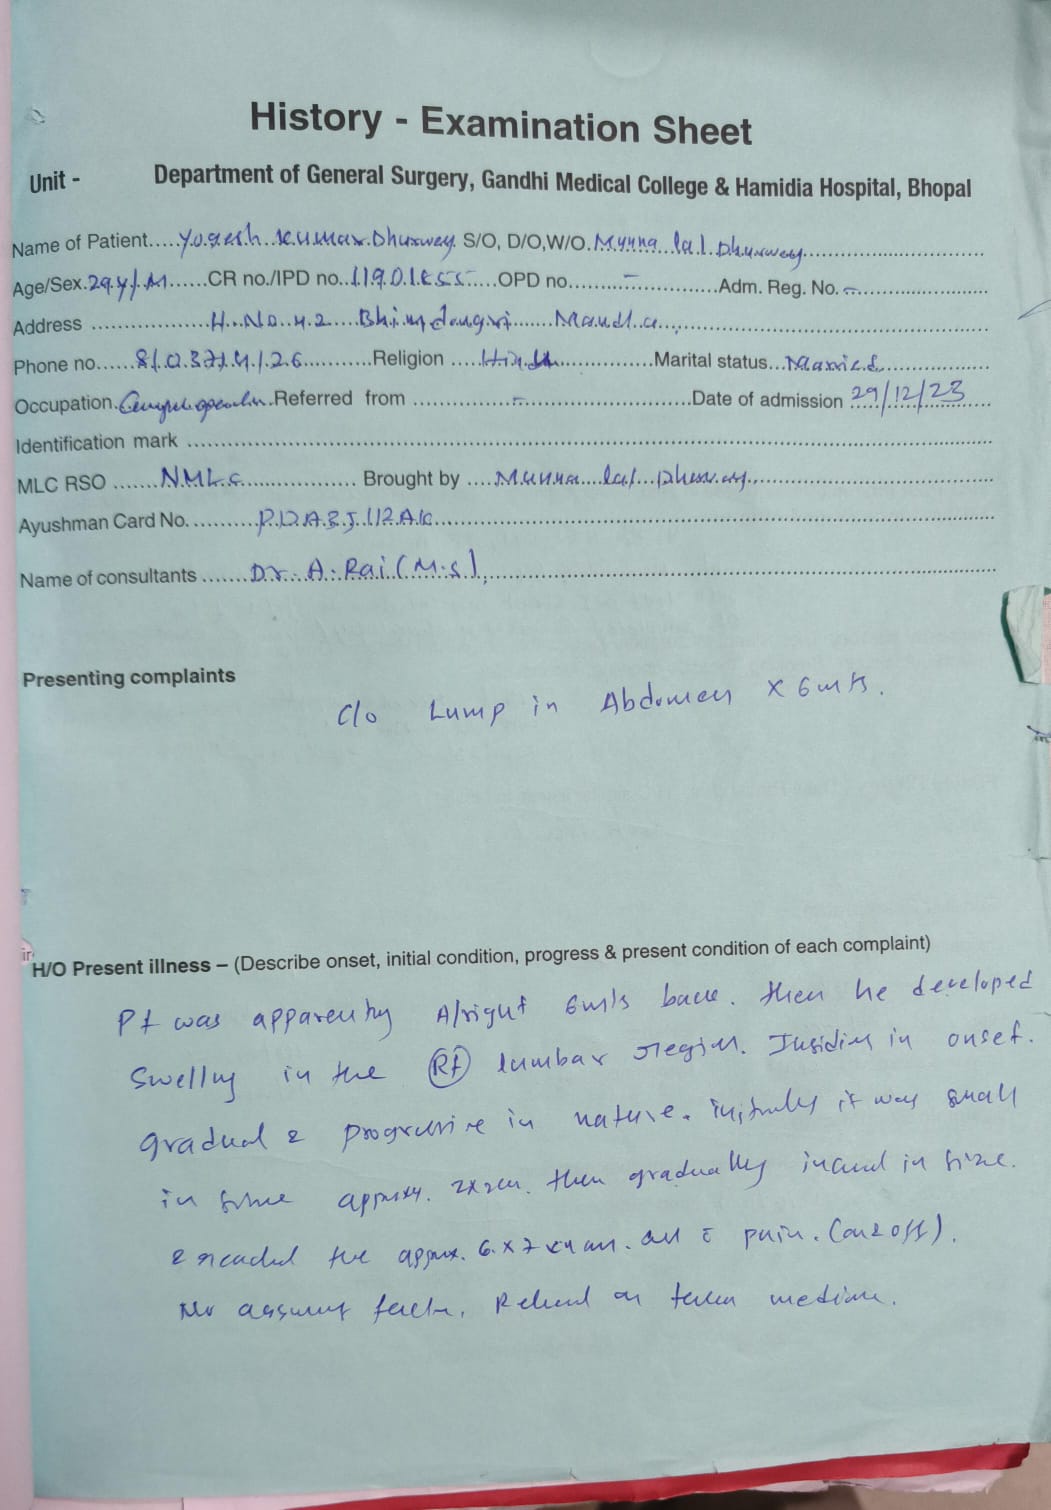 History - Examination Sheet
Unit - Department of General Surgery, Gandhi Medical College & Hamidia Hospital, Bhopal
Name of Patient.....Yogesh Kumar Dhurwey S/O, D/O,W/O. Munna lal Dhurwey
Age/Sex. 29 y/M ......CR no./IPD no.. .....OPD no. - Adm. Reg. No. -
Address H.No. 42 Bhimdongri Mandla
Phone no. Religion Hindu Marital status...Married
Occupation. Referred from - Date of admission 29/12/23
Identification mark
MLC RSO N.M.L.C. Brought by Munna lal Dhurwey
Ayushman Card No.
Name of consultants Dr. A. Rai (M.S)
Presenting complaints
C/o Lump in Abdomen x
H/O Present illness – (Describe onset, initial condition, progress & present condition of each complaint)
Pt was apparently Alright back. then he developed
Swelling in the Rt lumbar region. in onset.
gradual & progressive in nature. initially it was small
in size approx. 2x2cm. then gradually in size.
& reached the approx. 6x7 pain. (on & off).
No factor. Relieved on taken